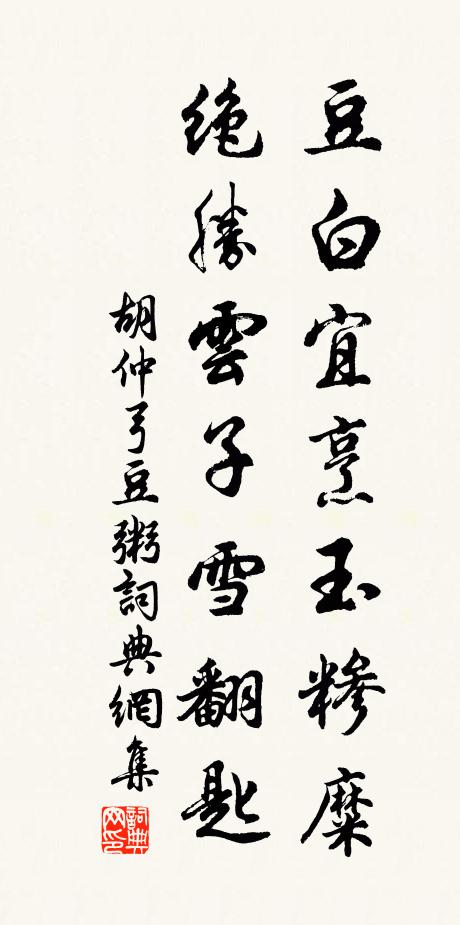 豆白宜烹玉糝糜
絶勝雲子雪翻匙
胡仲弓豆粥詞典網集
詞典网印